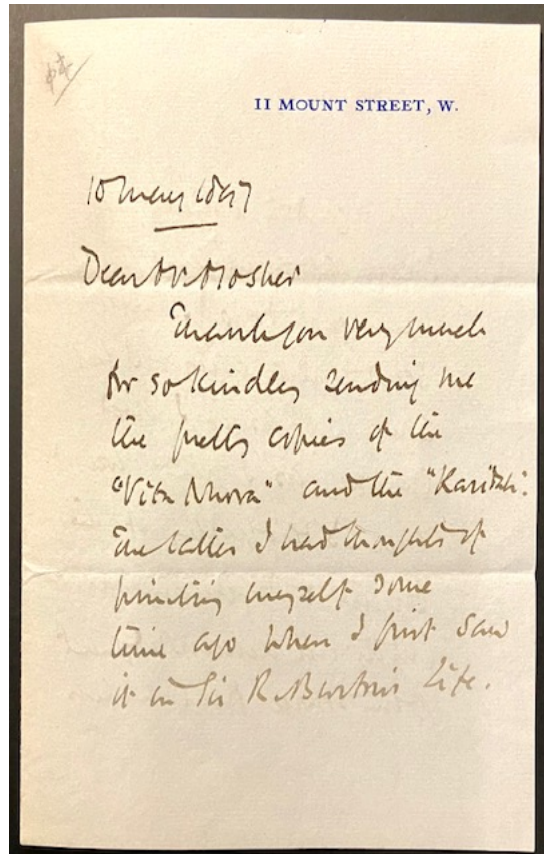 11 MOUNT STREET, W.
10 May 1897
Dear Mr Mosher
Thank you very much
for so kindly sending me
the pretty copies of the
"Vita Nuova" and the "Kasidah".
The latter I had thoughts of
printing myself some
time ago when I first saw
it in Sir R. Burton's Life.